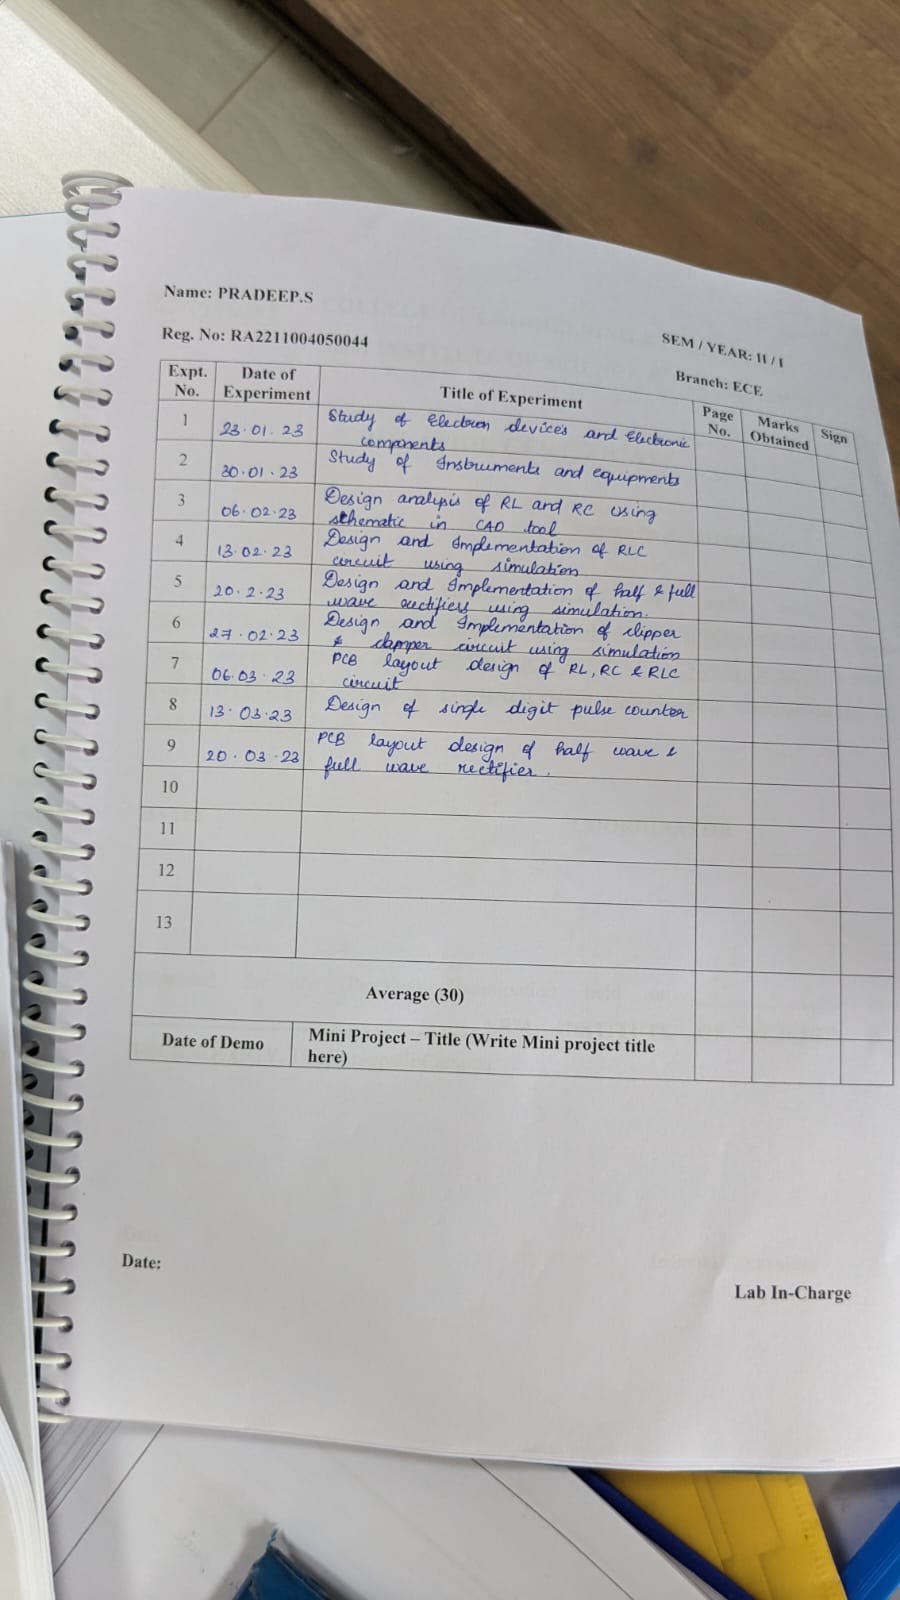 Name: PRADEEP.S
Reg. No: RA2211004050044
SEM / YEAR: II / I
Branch: ECE
Expt. No. Date of Experiment Title of Experiment Page No. Marks Obtained Sign
1 23.01.23 Study of Electron devices and Electronic
components
2 30.01.23 Study of Instruments and equipments
3 06.02.23 Design analysis of RL and RC using
schematic in CAD tool
4 13.02.23 Design and Implementation of RLC
circuit using simulation
5 20.2.23 Design and Implementation of half & full
wave rectifiers using simulation.
6 27.02.23 Design and Implementation of clipper
& clamper circuit using simulation
7 06.03.23 PCB layout design of RL, RC & RLC
circuit
8 13.03.23 Design of single digit pulse counter
9 20.03.23 PCB layout design of half wave &
full wave rectifier.
10
11
12
13
Average (30)
Date of Demo Mini Project – Title (Write Mini project title
here)
Date:
Lab In-Charge